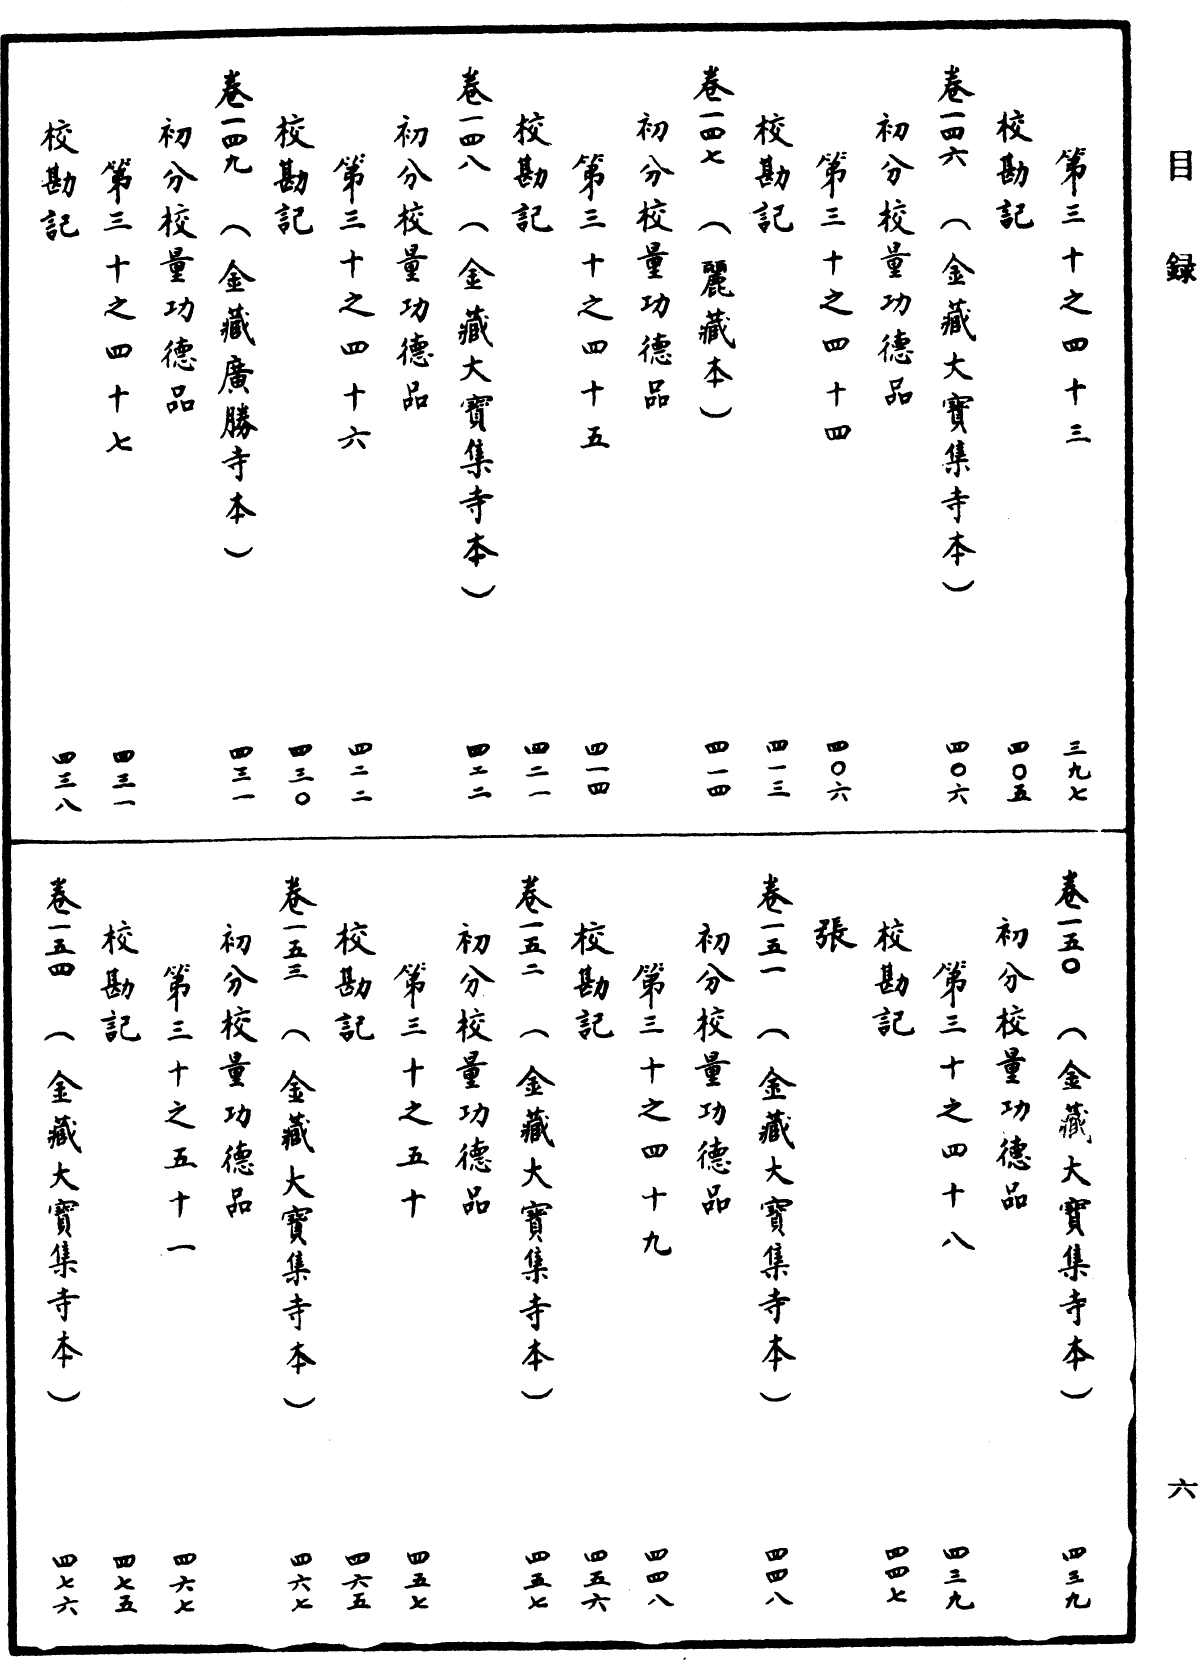 目録
第三十之四十三 三九七
校勘記 四〇五
卷一四六（金藏大寶集寺本） 四〇六
初分校量功德品
第三十之四十四 四〇六
校勘記 四一三
卷一四七（麗藏本） 四一四
初分校量功德品
第三十之四十五 四一四
校勘記 四二一
卷一四八（金藏大寶集寺本） 四二二
初分校量功德品
第三十之四十六 四二二
校勘記 四三〇
卷一四九（金藏廣勝寺本） 四三一
初分校量功德品
第三十之四十七 四三一
校勘記 四三八
卷一五〇（金藏大寶集寺本） 四三九
初分校量功德品
第三十之四十八 四三九
校勘記 四四七
張
卷一五一（金藏大寶集寺本） 四四八
初分校量功德品
第三十之四十九 四四八
校勘記 四五六
卷一五二（金藏大寶集寺本） 四五七
初分校量功德品
第三十之五十 四五七
校勘記 四六五
卷一五三（金藏大寶集寺本） 四六七
初分校量功德品
第三十之五十一 四六七
校勘記 四七五
卷一五四（金藏大寶集寺本） 四七六
六